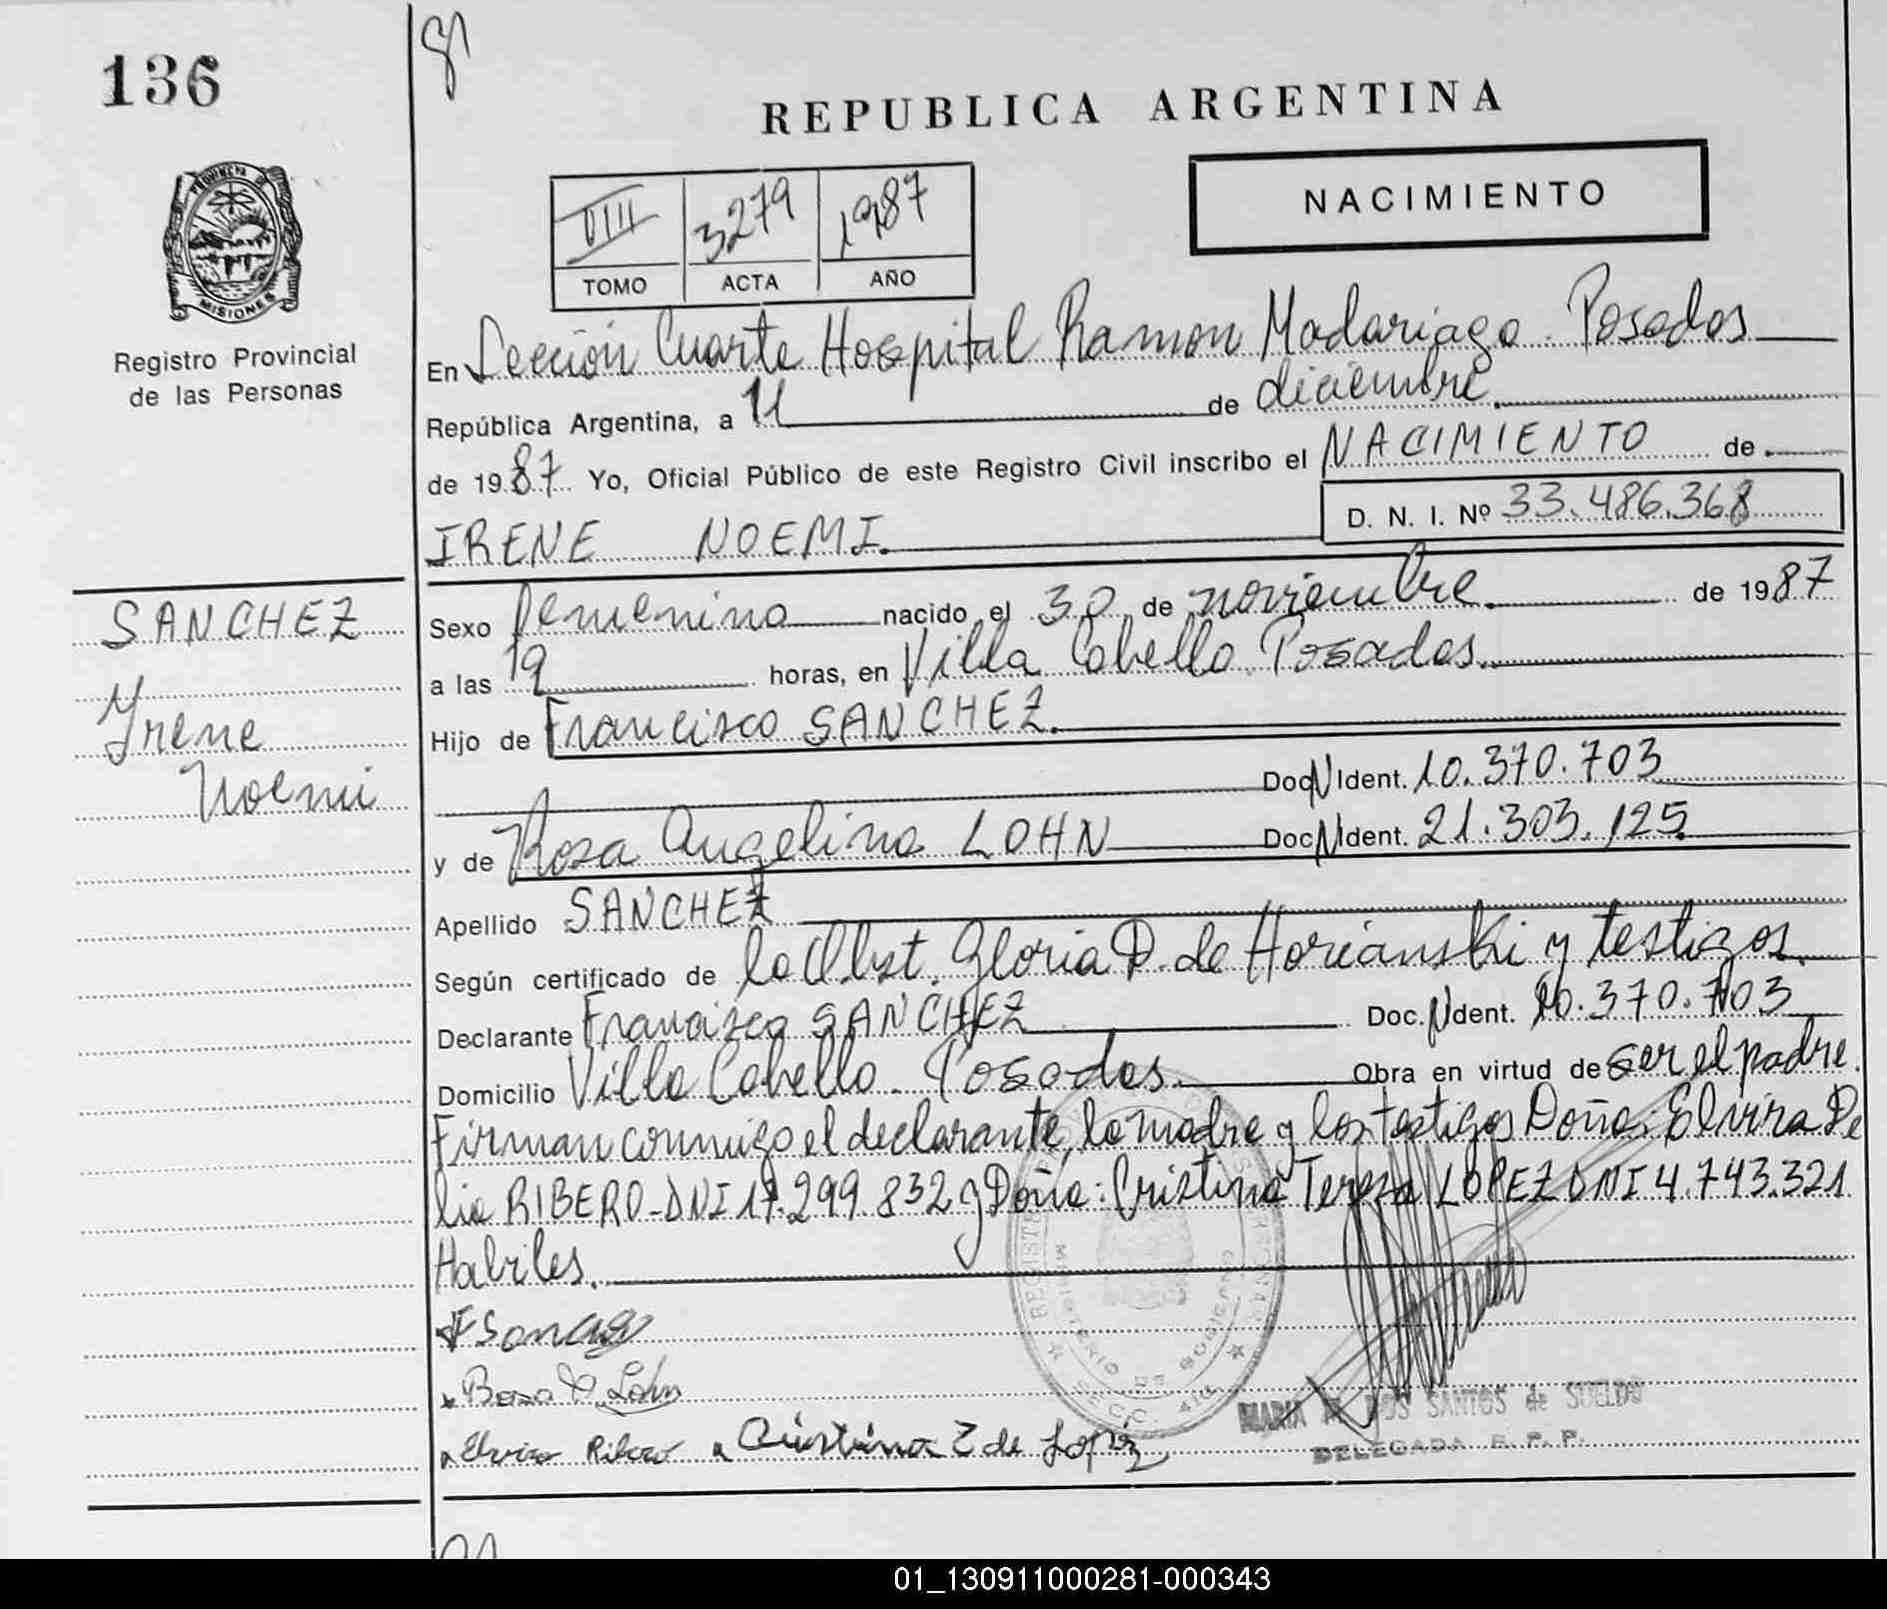 136
REPUBLICA ARGENTINA
NACIMIENTO
VIII 3279 1987
TOMO ACTA AÑO
PROVINCIA DE
MISIONES
Registro Provincial
de las Personas
En Sección Cuarta Hospital Ramon Madariaga Posadas
República Argentina, a 11 de diciembre
de 1987 Yo, Oficial Público de este Registro Civil inscribo el NACIMIENTO de
D. N. I. Nº 33.486.368
IRENE NOEMI.
SANCHEZ
Irene
Noemi
Sexo femenino nacido el 30 de noviembre de 1987
a las 19 horas, en Villa Cabello Posadas.
Hijo de Francisco SANCHEZ.
Doc N Ident. 10.370.703
y de Rosa Angelina LOHN Doc N Ident. 21.303.125
Apellido SANCHEZ
Según certificado de la Obst. Gloria D. de Horianski y testigos.
Declarante Francisco SANCHEZ Doc. N Ident. 10.370.703
Domicilio Villa Cabello. Posadas Obra en virtud de ser el padre.
Firman conmigo el declarante, la madre y los testigos Doña: Elvira De
lia RIBERO-DNI 17.299.832 y Doña: Cristina Teresa LOPEZ DNI 4.743.321
Habiles.
F Sanchez
Rosa Lohn
Elvira Ribero Cristina T de Lopez
MINISTERIO DE
SECC. 4ta
MARIA DOS SANTOS de SUELDO
DELEGADA R. P. P.
01_130911000281-000343